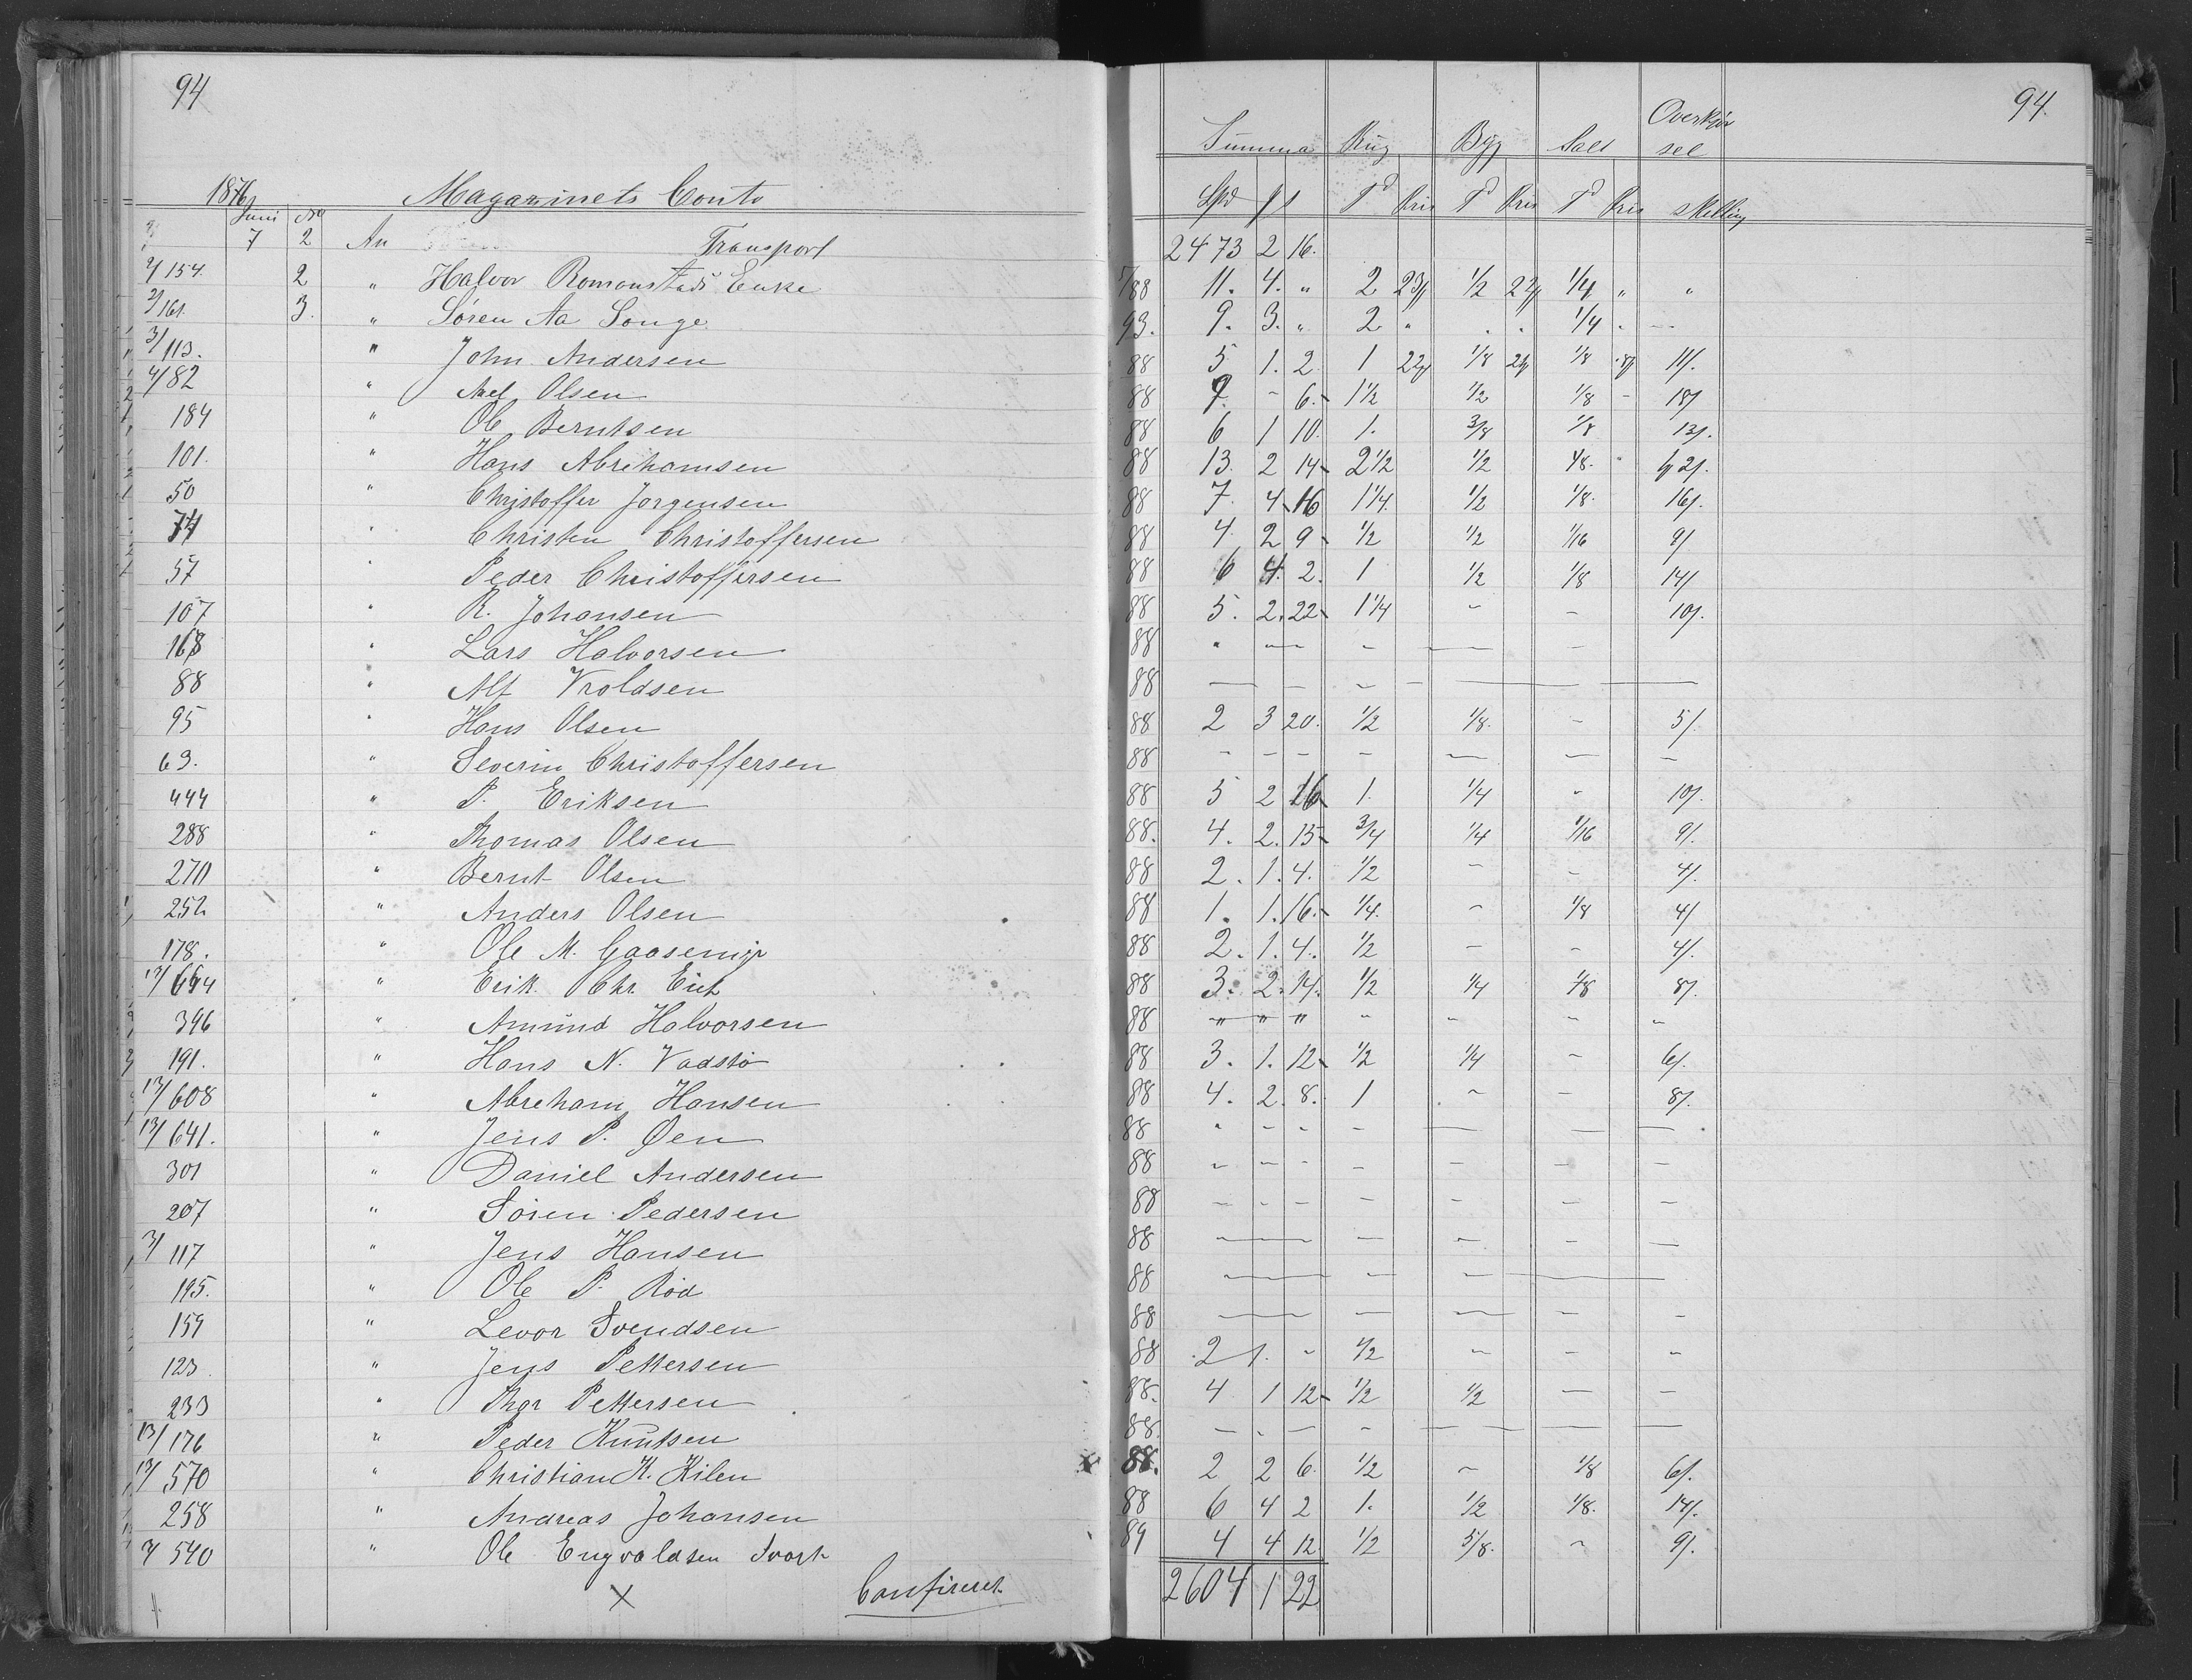 94
1876
Magazinets Conto
Juni No
7 2 An Transport
2/154. 2 " Halvor Romonstads Enke
2/161. 3. " Sören Aa Songe
3/113. " John Andersen
4/82 " Axel Olsen
184 " Ole Berntsen
101. " Hans Abrehamsen
50 " Christoffer Jorgensen
74 " Christen Christoffersen
57 " Peder Christoffersen
107 " R. Johansen
168 " Lars Halvorsen
88 " Alf Vroldsen
95 " Hans Olsen
63. " Severin Christoffersen
444 " P. Eriksen
288 " Thomas Olsen
270 " Bernt Olsen
252 " Anders Olsen
178. " Ole M. Gaasemyr
13/664 " Erik Chr. Eiet
396 " Amund Halvorsen
191. " Hans N. Vadstö
13/608 " Abreham Hansen
13/641. " Jens P. Øen
301 " Daniel Andersen
207 " Sören Pedersen
3/117 " Jens Hansen
195. " Ole P. Röd
159 " Levor Svendsen
123 " Jens Pettersen
233 " Thor Pettersen
13/176 " Peder Knutsen
13/570 " Christian K. Kilen
258 " Andreas Johansen
3/540 " Ole Engvaldsen Svart
X Confireret
94.
Summa Rug Byg Salt Overkjørsel
Spd ß Td Pris Td Pris Td Pris Skilling
2473 2 16.
5/88 11. 4. " 2 23 1/2 22 1/4 " "
93. 9. 3. " 2 " . . 1/4 . —
88 5 1. 2 1 22 1/8 21 1/8 11/.
88 7. - 6. 1 1/2 1/2 1/8 - 18/
88 6 1 10. 1. 3/8 1/8 13/.
88 13. 2 14 2 1/2 1/2 1/8. " 21/.
88 7. 4 16 1 1/4. 1/2 1/8. 16/.
88 4. 2 9 1/2 1/2 1/16 9/
88 6 4. 2. 1 1/2 1/8 14/
88 5. 2. 22 1 1/4 - - 10/.
88 " - - - -
88 — — - - — —
88 2 3 20. 1/2 1/8. - 5/.
88 - - - - — — -
88 5 2 16 1. 1/4 " 10/.
88. 4. 2. 15 3/4 1/4 1/16 9/.
88 2. 1. 4. 1/2 - - 4/.
88 1. 1. 16. 1/4. - 1/8 4/
88 2. 1. 4. 1/2 - - 4/.
88 3. 2. 14. 1/2 1/4 1/8 8/.
88 " " " " " " "
88 3. 1. 12 1/2 1/4 - 6/.
88 4. 2. 8. 1 - - 8/.
88 " - - - — — —
88 - - - - - - -
88 - - - - - - -
88 — - - - —
88 — - - —
88 — - — - -
88 2 1. " 1/2 - - -
88. 4 1 12 1/2 1/2 — —
88. - - - - — — —
88. 2 2 6 1/2 - 1/8 6/.
88 6 4 2 1. 1/2 1/8. 14/.
89 4 4 12 1/2 5/8. - 9/.
2604 1 22